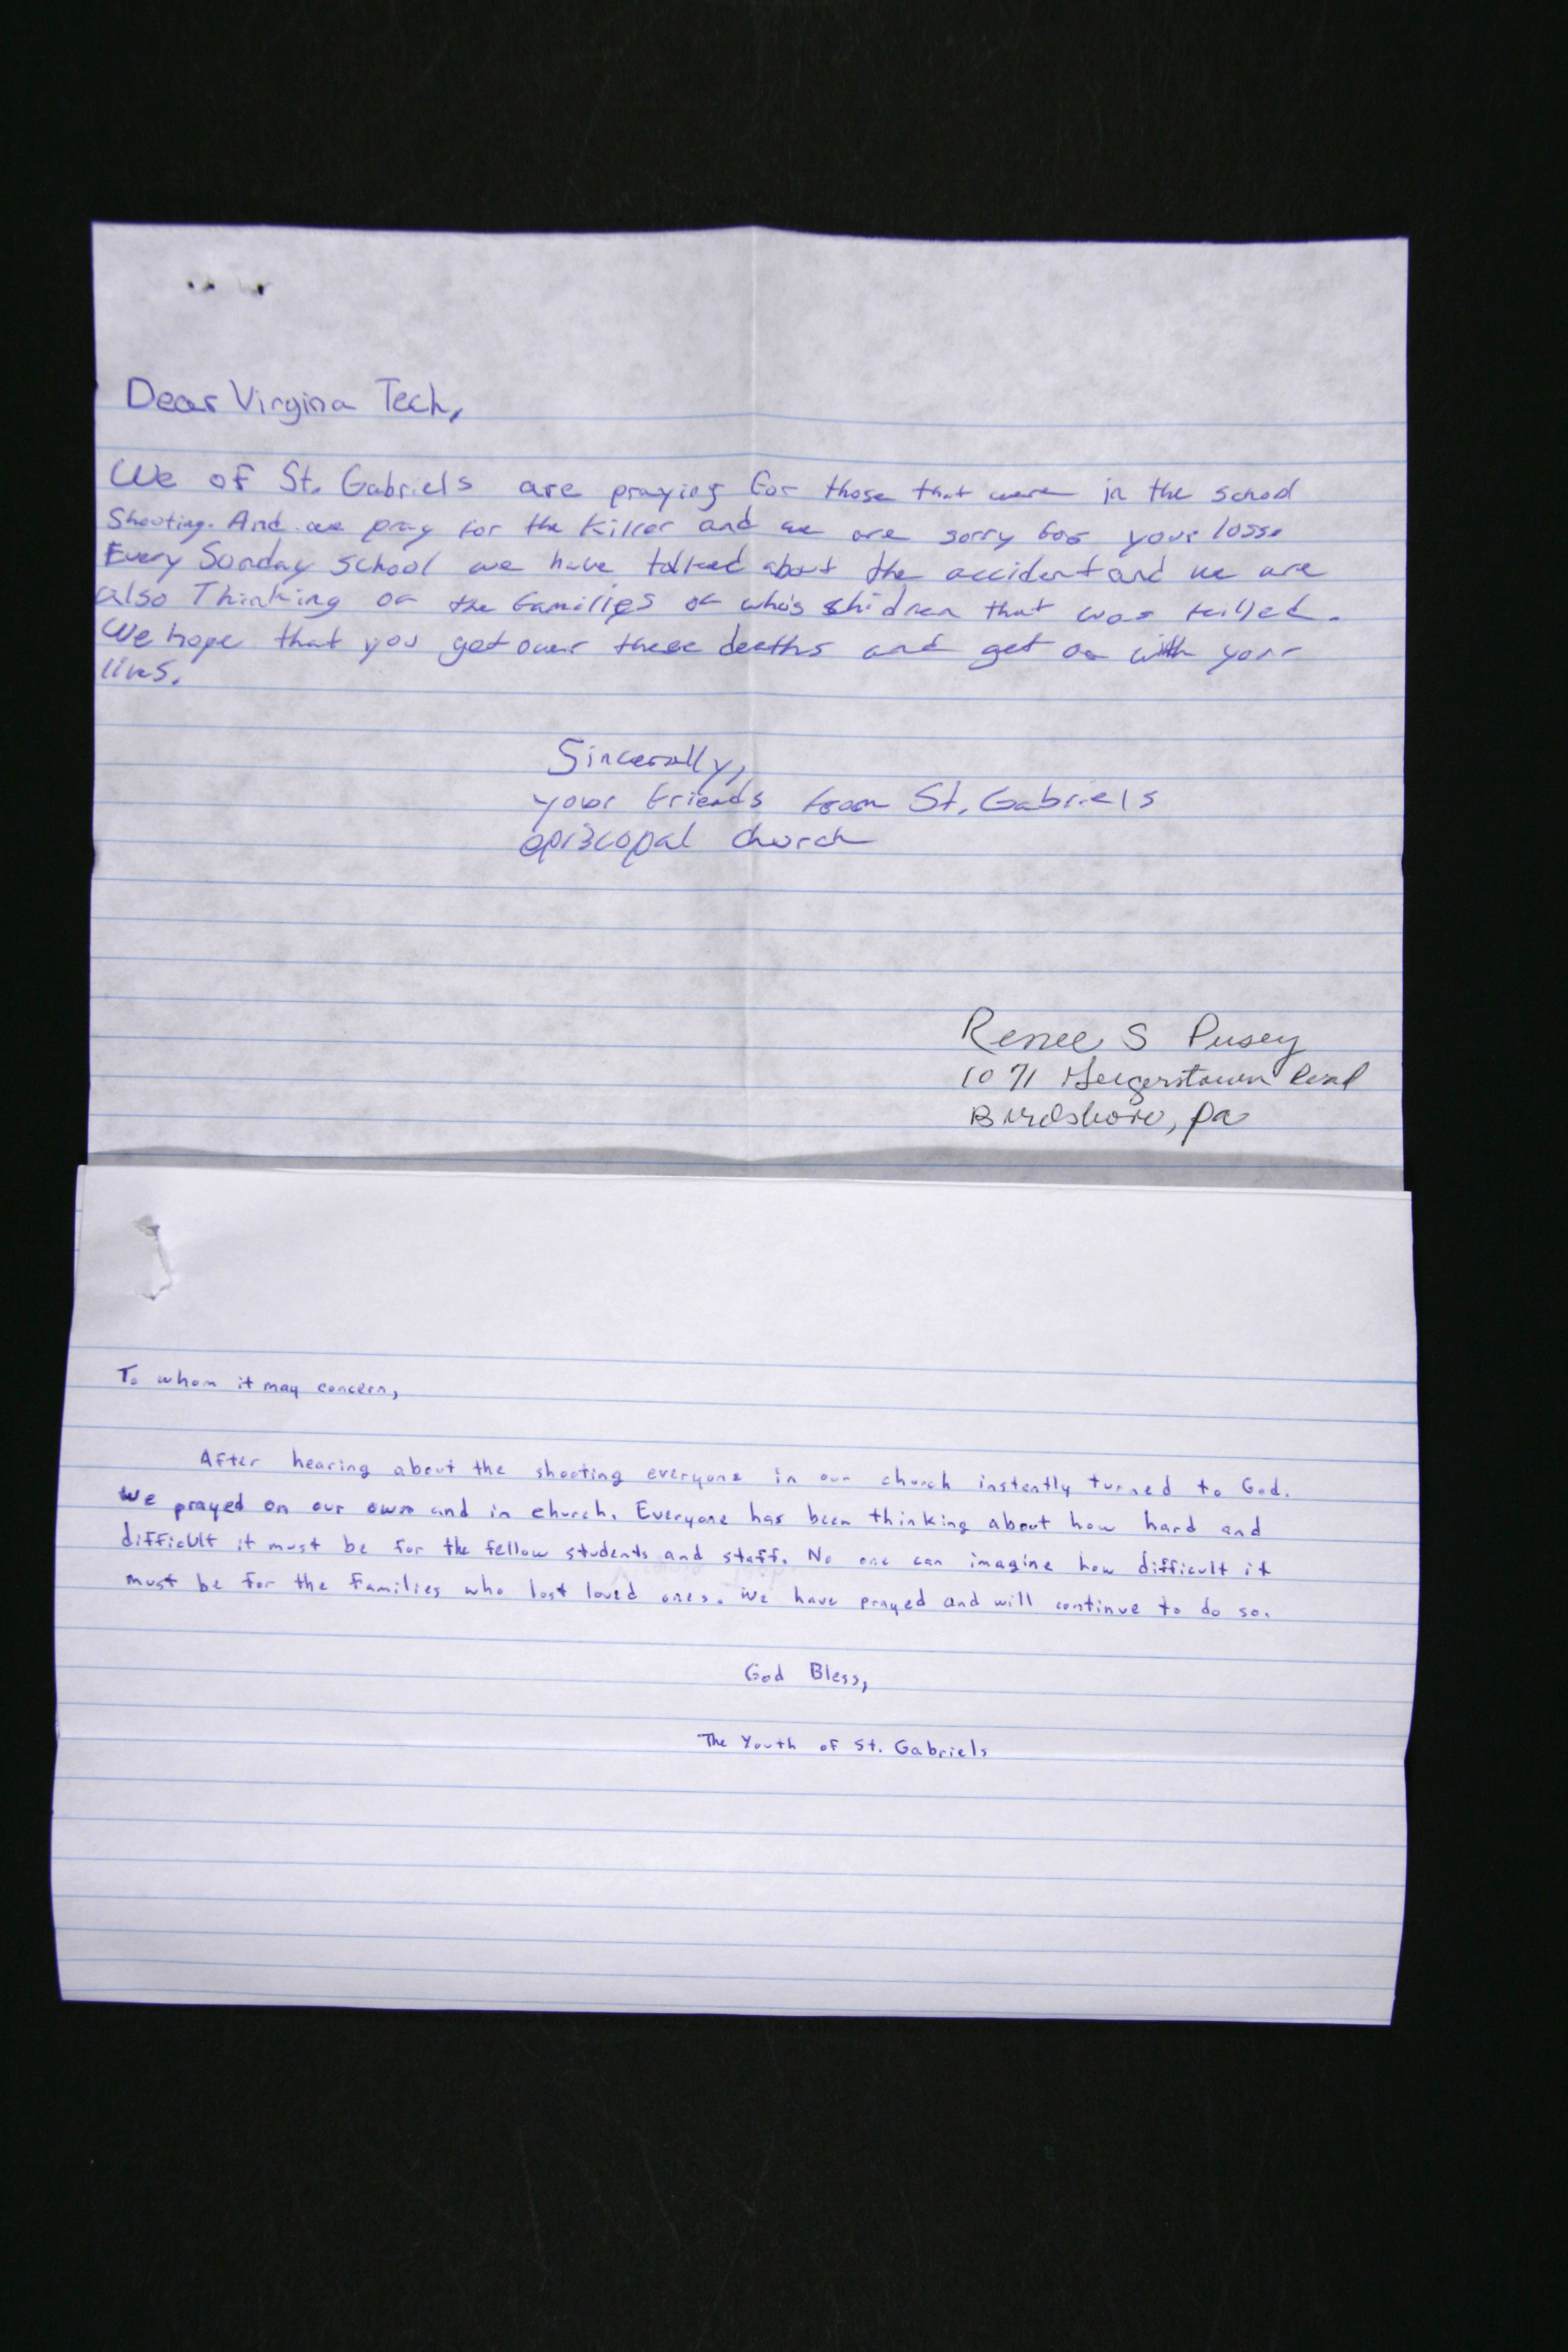 Dear Virgina Tech,
We of St. Gabriels are praying for those that were in the school
Shooting. And we pray for the killer and we are sorry for your loss.
Every Sunday school we have talked about the accident and we are
also Thinking of the families of who's children that was killed.
We hope that you get over these deaths and get on with your
lives.
Sincerally,
your friends from St. Gabriels
episcopal church
Renee S Pusey
1071 Geigerstown Road
Birdsboro, Pa
To whom it may concern,
After hearing about the shooting everyone in our church instantly turned to God.
We prayed on our own and in church. Everyone has been thinking about how hard and
difficult it must be for the fellow students and staff. No one can imagine how difficult it
must be for the families who lost loved ones. We have prayed and will continue to do so.
God Bless,
The Youth of St. Gabriels